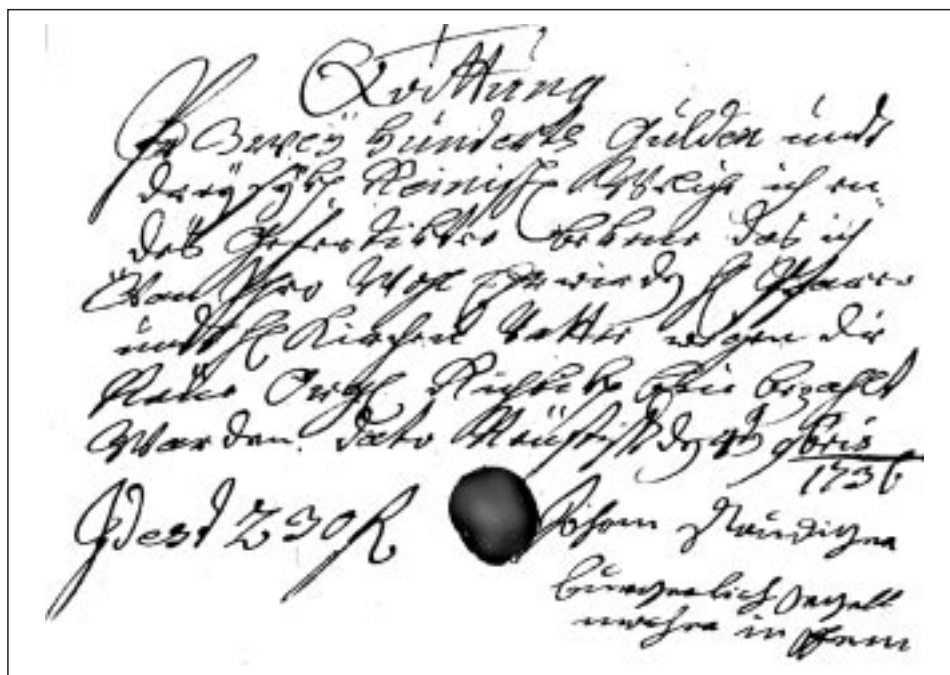 Quittung
Per Zweÿ hundert Gulden undt
dreÿsig Reinisch Welche ich en
des gefertikter bekene das ich
Von Ihro Wohl Ehrwierden H Pfarer
undt H Kirchen Vatter wegen die
Neüe Orgl Richtik bin bezahlt
Worden. dato Neüstift 9bris
1736
Idest 230 fl
Johan
burgerlich orgell
macher in